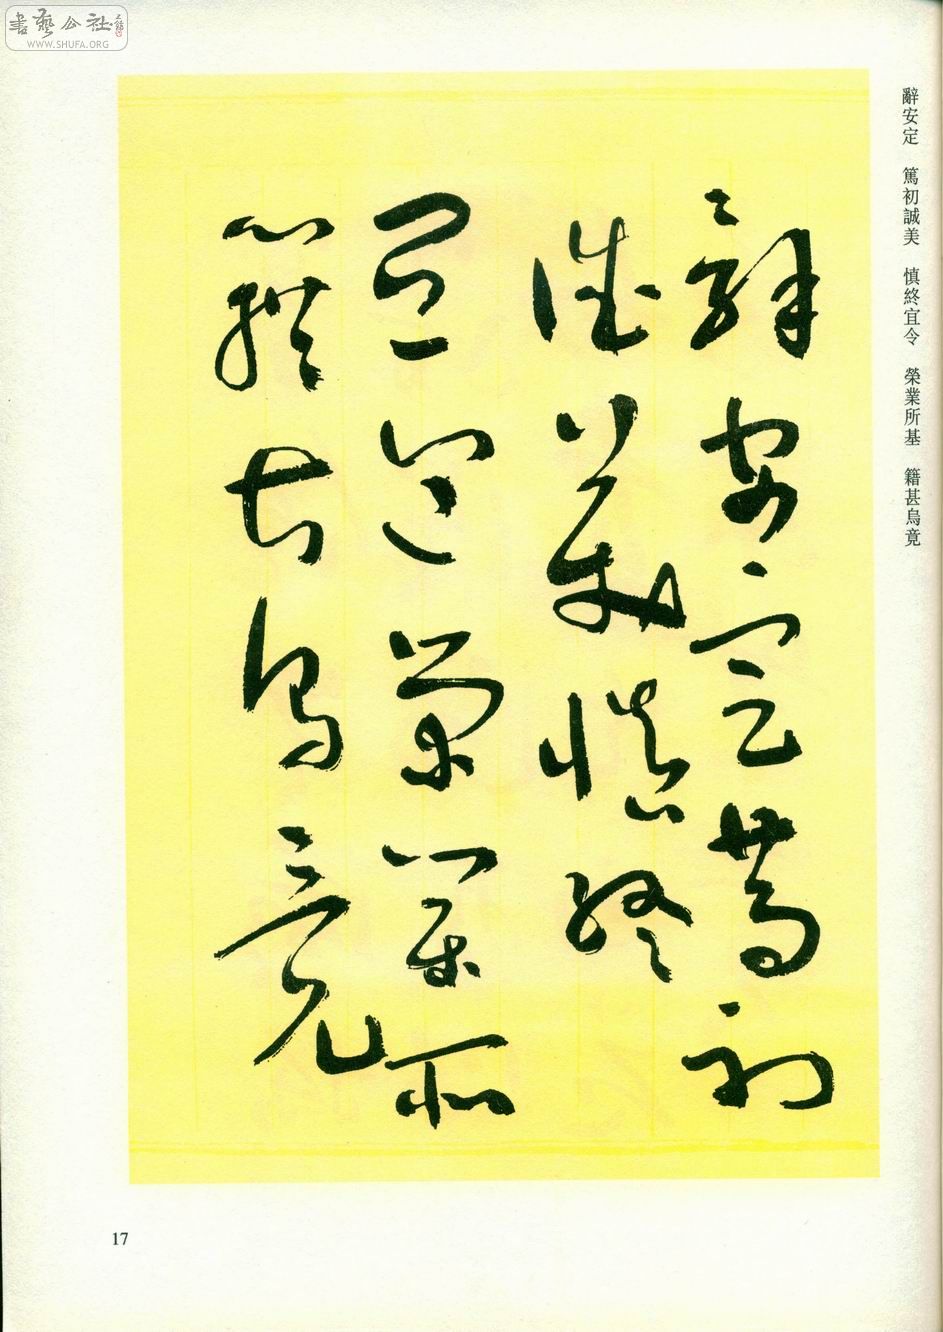 書藝公社
WWW.SHUFA.ORG
辭安定　篤初誠美　慎終宜令　榮業所基　籍甚烏竟
辭安定篤初
誠美慎終
宜令榮業所
籍甚烏竟
17